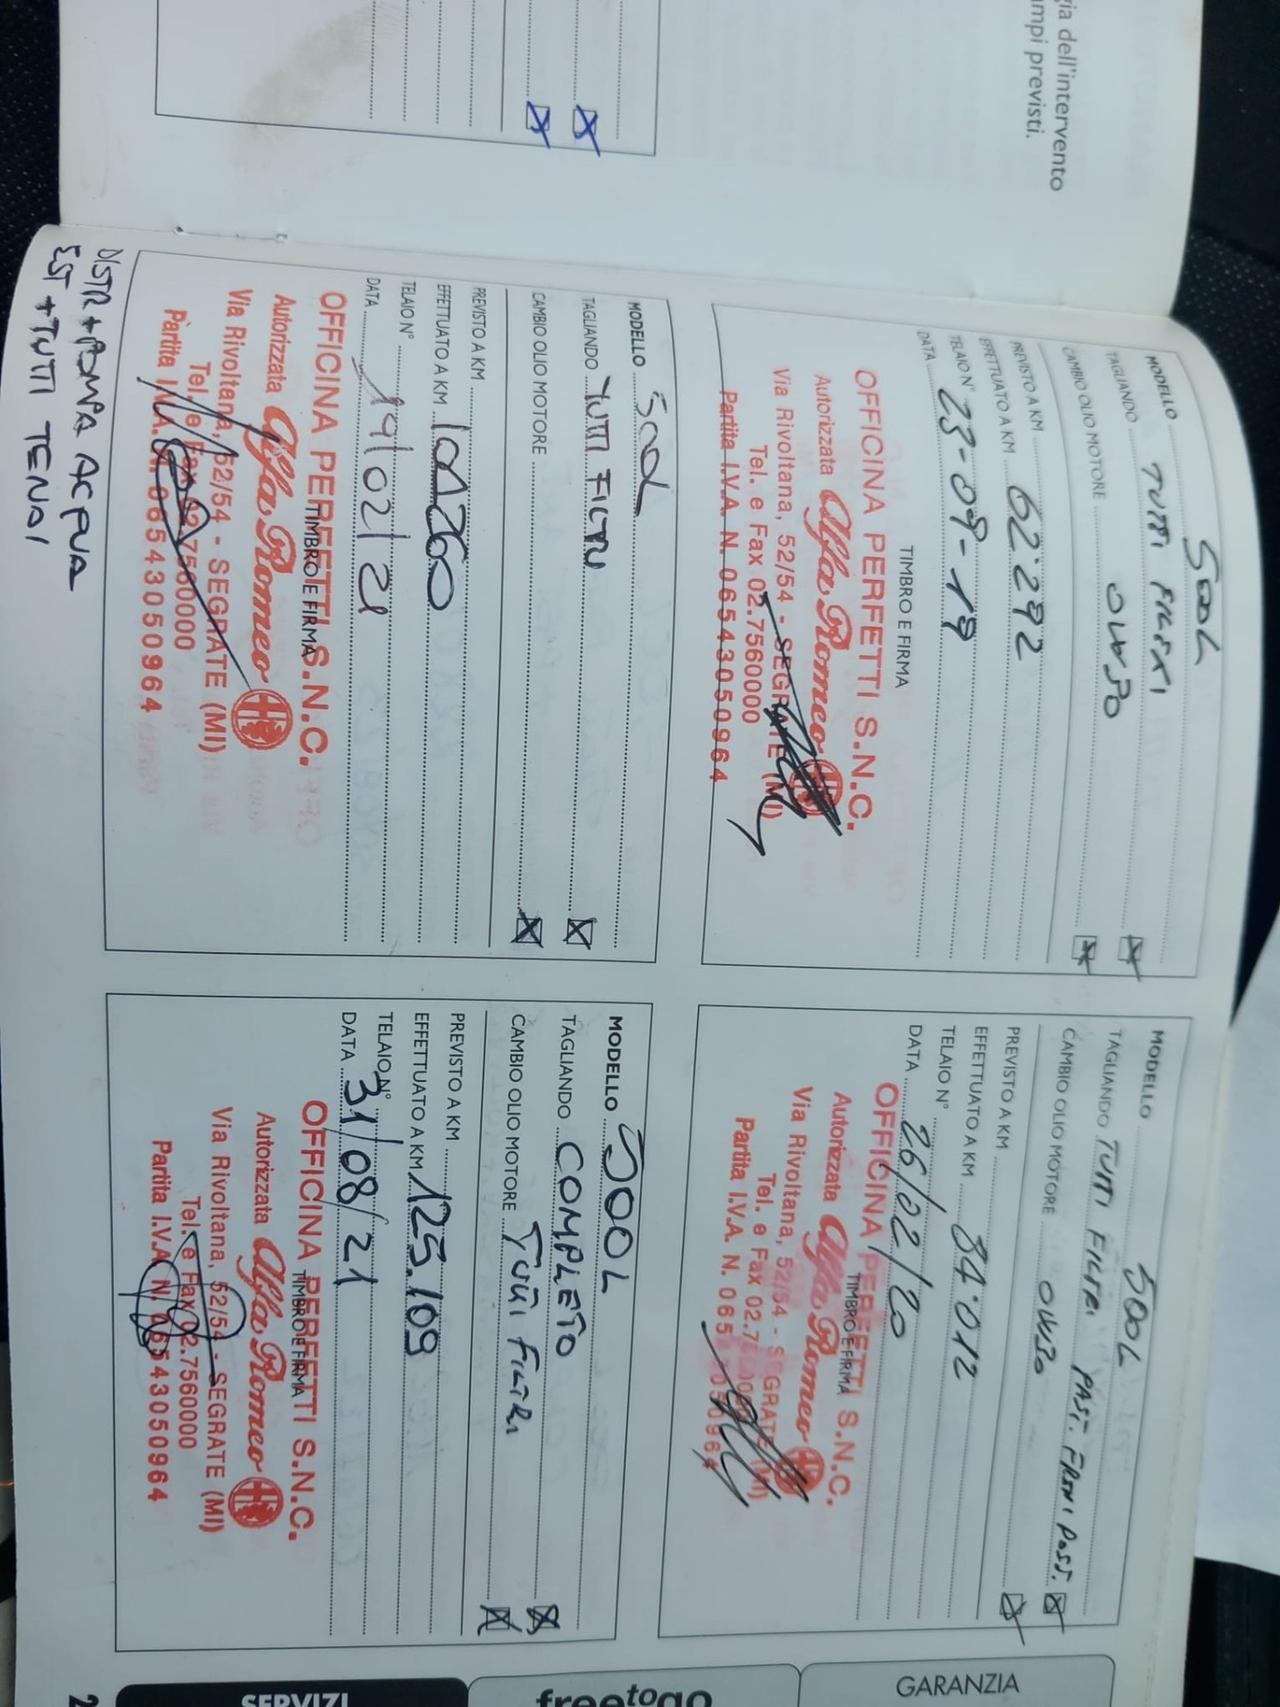 gia dell'intervento
mpi previsti.
MODELLO 500L
TAGLIANDO TUTTI FILTRI
CAMBIO OLIO MOTORE 0W30
PREVISTO A KM
EFFETTUATO A KM 62.292
TELAIO N°
DATA 23-09-19
TIMBRO E FIRMA
OFFICINA PERFETTI S.N.C.
Autorizzata Alfa Romeo
Via Rivoltana, 52/54 - SEGRATE (MI)
Tel. e Fax 02.7560000
Partita I.V.A. N. 06543050964
MODELLO 500L
TAGLIANDO TUTTI FILTRI PAST. FRENI POST.
CAMBIO OLIO MOTORE 0W30
PREVISTO A KM
EFFETTUATO A KM 84.012
TELAIO N°
DATA 26/02/20
TIMBRO E FIRMA
OFFICINA PERFETTI S.N.C.
Autorizzata Alfa Romeo
Via Rivoltana, 52/54 - SEGRATE (MI)
Tel. e Fax 02.7560000
Partita I.V.A. N. 06543050964
MODELLO 500L
TAGLIANDO TUTTI FILTRI
CAMBIO OLIO MOTORE
PREVISTO A KM
EFFETTUATO A KM
TELAIO N°
DATA 19/02/21
TIMBRO E FIRMA
OFFICINA PERFETTI S.N.C.
Autorizzata Alfa Romeo
Via Rivoltana, 52/54 - SEGRATE (MI)
Tel. e Fax 02.7560000
Partita I.V.A. N. 06543050964
DISTR + POMPA ACQUA
EST + TUTTI TENDI
MODELLO 500L
TAGLIANDO COMPLETO
CAMBIO OLIO MOTORE TUTTI FILTRI
PREVISTO A KM
EFFETTUATO A KM 125.109
TELAIO N°
DATA 31/08/21
TIMBRO E FIRMA
OFFICINA PERFETTI S.N.C.
Autorizzata Alfa Romeo
Via Rivoltana, 52/54 - SEGRATE (MI)
Tel. e Fax 02.7560000
Partita I.V.A. N. 06543050964
GARANZIA
freetogo
SERVIZI
2